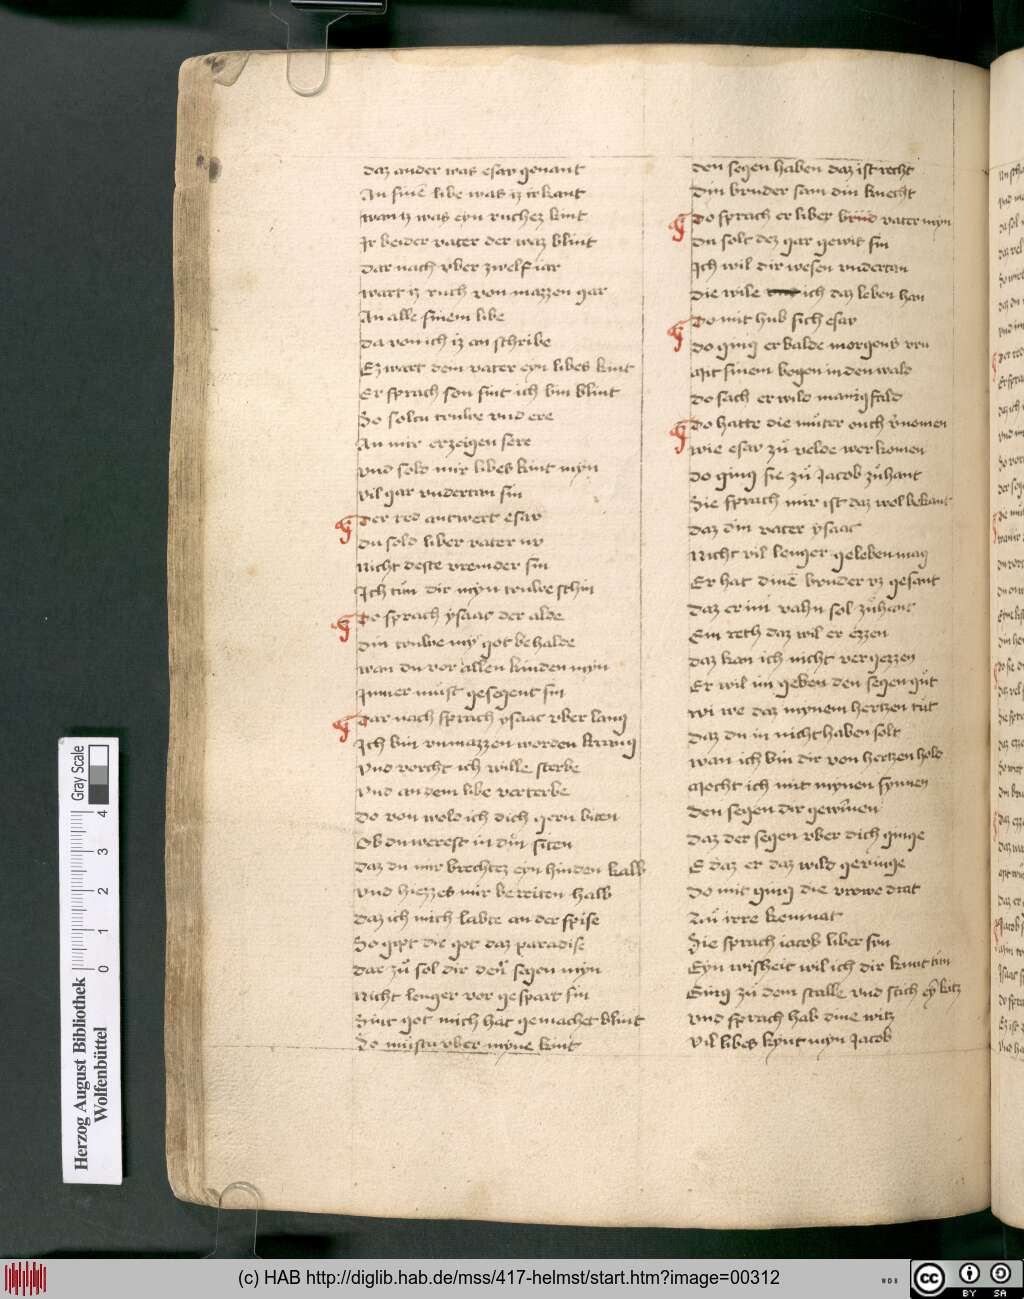 daz ander was esav genant
An sinē libe was iz irkant
wan iz was eyn ruchez kint
Ir beider vater der waz blint
dar nach vber zwelf iar
wart iz ruch von mazzen gar
An alle sinem libe
da von ich iz an schribe
Ez wart dem vater eyn libes kint
Er sprach son sint ich bin blint
So soltu truwe vnd ere
An mir erzeigen sere
vnd sold mir libes kint myn
vil gar vndertan sin
Der red antwert esav
du sold liber vater nv
Nicht deste vremder sin
Ich tun dir myn truwe schin
Do sprach ysaac der alde
din truwe my got behalde
wan du vor allen kinden myn
Immer must gesegent sin
Dar nach sprach ysaac vber lang
Ich bin vnmazzen worden krang
vnd vorcht ich wille sterbe
vnd an dem libe verterbe
Do von wold ich dich gern biten
Ob du werest in din siten
daz du mir brechtez eyn hinden kalb
vnd hiezzes mir bereiten halb
daz ich mich labte an der spise
So gipt die got daz paradise
dar zu sol dir der segen myn
Nicht lenger vor gespart sin
Sint got mich hat gemachet blint
So mustu vber myne kint
den segen haben daz ist recht
din bruder sam din knecht
Do sprach er liber vater myn
du solt dez gar gewis sin
Ich wil dir wesen vndertan
die wile ich daz leben han
Do mit hub sich esav
do ging er balde morgens vru
Mit sinem bogen in den wald
do sach er wild manigfald
do hatte die muter ouch v̄nomen
wie esav zu velde wer komen
do ging sie zu Jacob zuhant
Sie sprach mir ist daz wol bekant
daz din vater ysaac
Nicht vil lenger geleben mag
Er hat dinē bruder vz gesant
daz er im vahn sol zuhant
Ein rech daz wil er ezzen
daz kan ich nicht vergezzen
Er wil im geben den segen gut
wi we daz mynem hertzen tut
daz du in nicht haben solt
wan ich bin dir von hertzen hold
Mocht ich mit mynen synnen
den segen dir gewinnen
daz der segen vber dich ginge
E daz er daz wild geuinge
Do mit ging die vrowe drat
Zu irre kemnat
Sie sprach iacob liber son
Eyn wisheit wil ich dir kunt tun
Ging zu dem stalle vnd stich ey kitz
vnd sprach hab dine witz
vil libes kynt myn Jacob
Herzog August Bibliothek
Wolfenbüttel
0 1 2 3 4
Gray Scale
(c) HAB http://diglib.hab.de/mss/417-helmst/start.htm?image=00312
WDB
CC BY SA